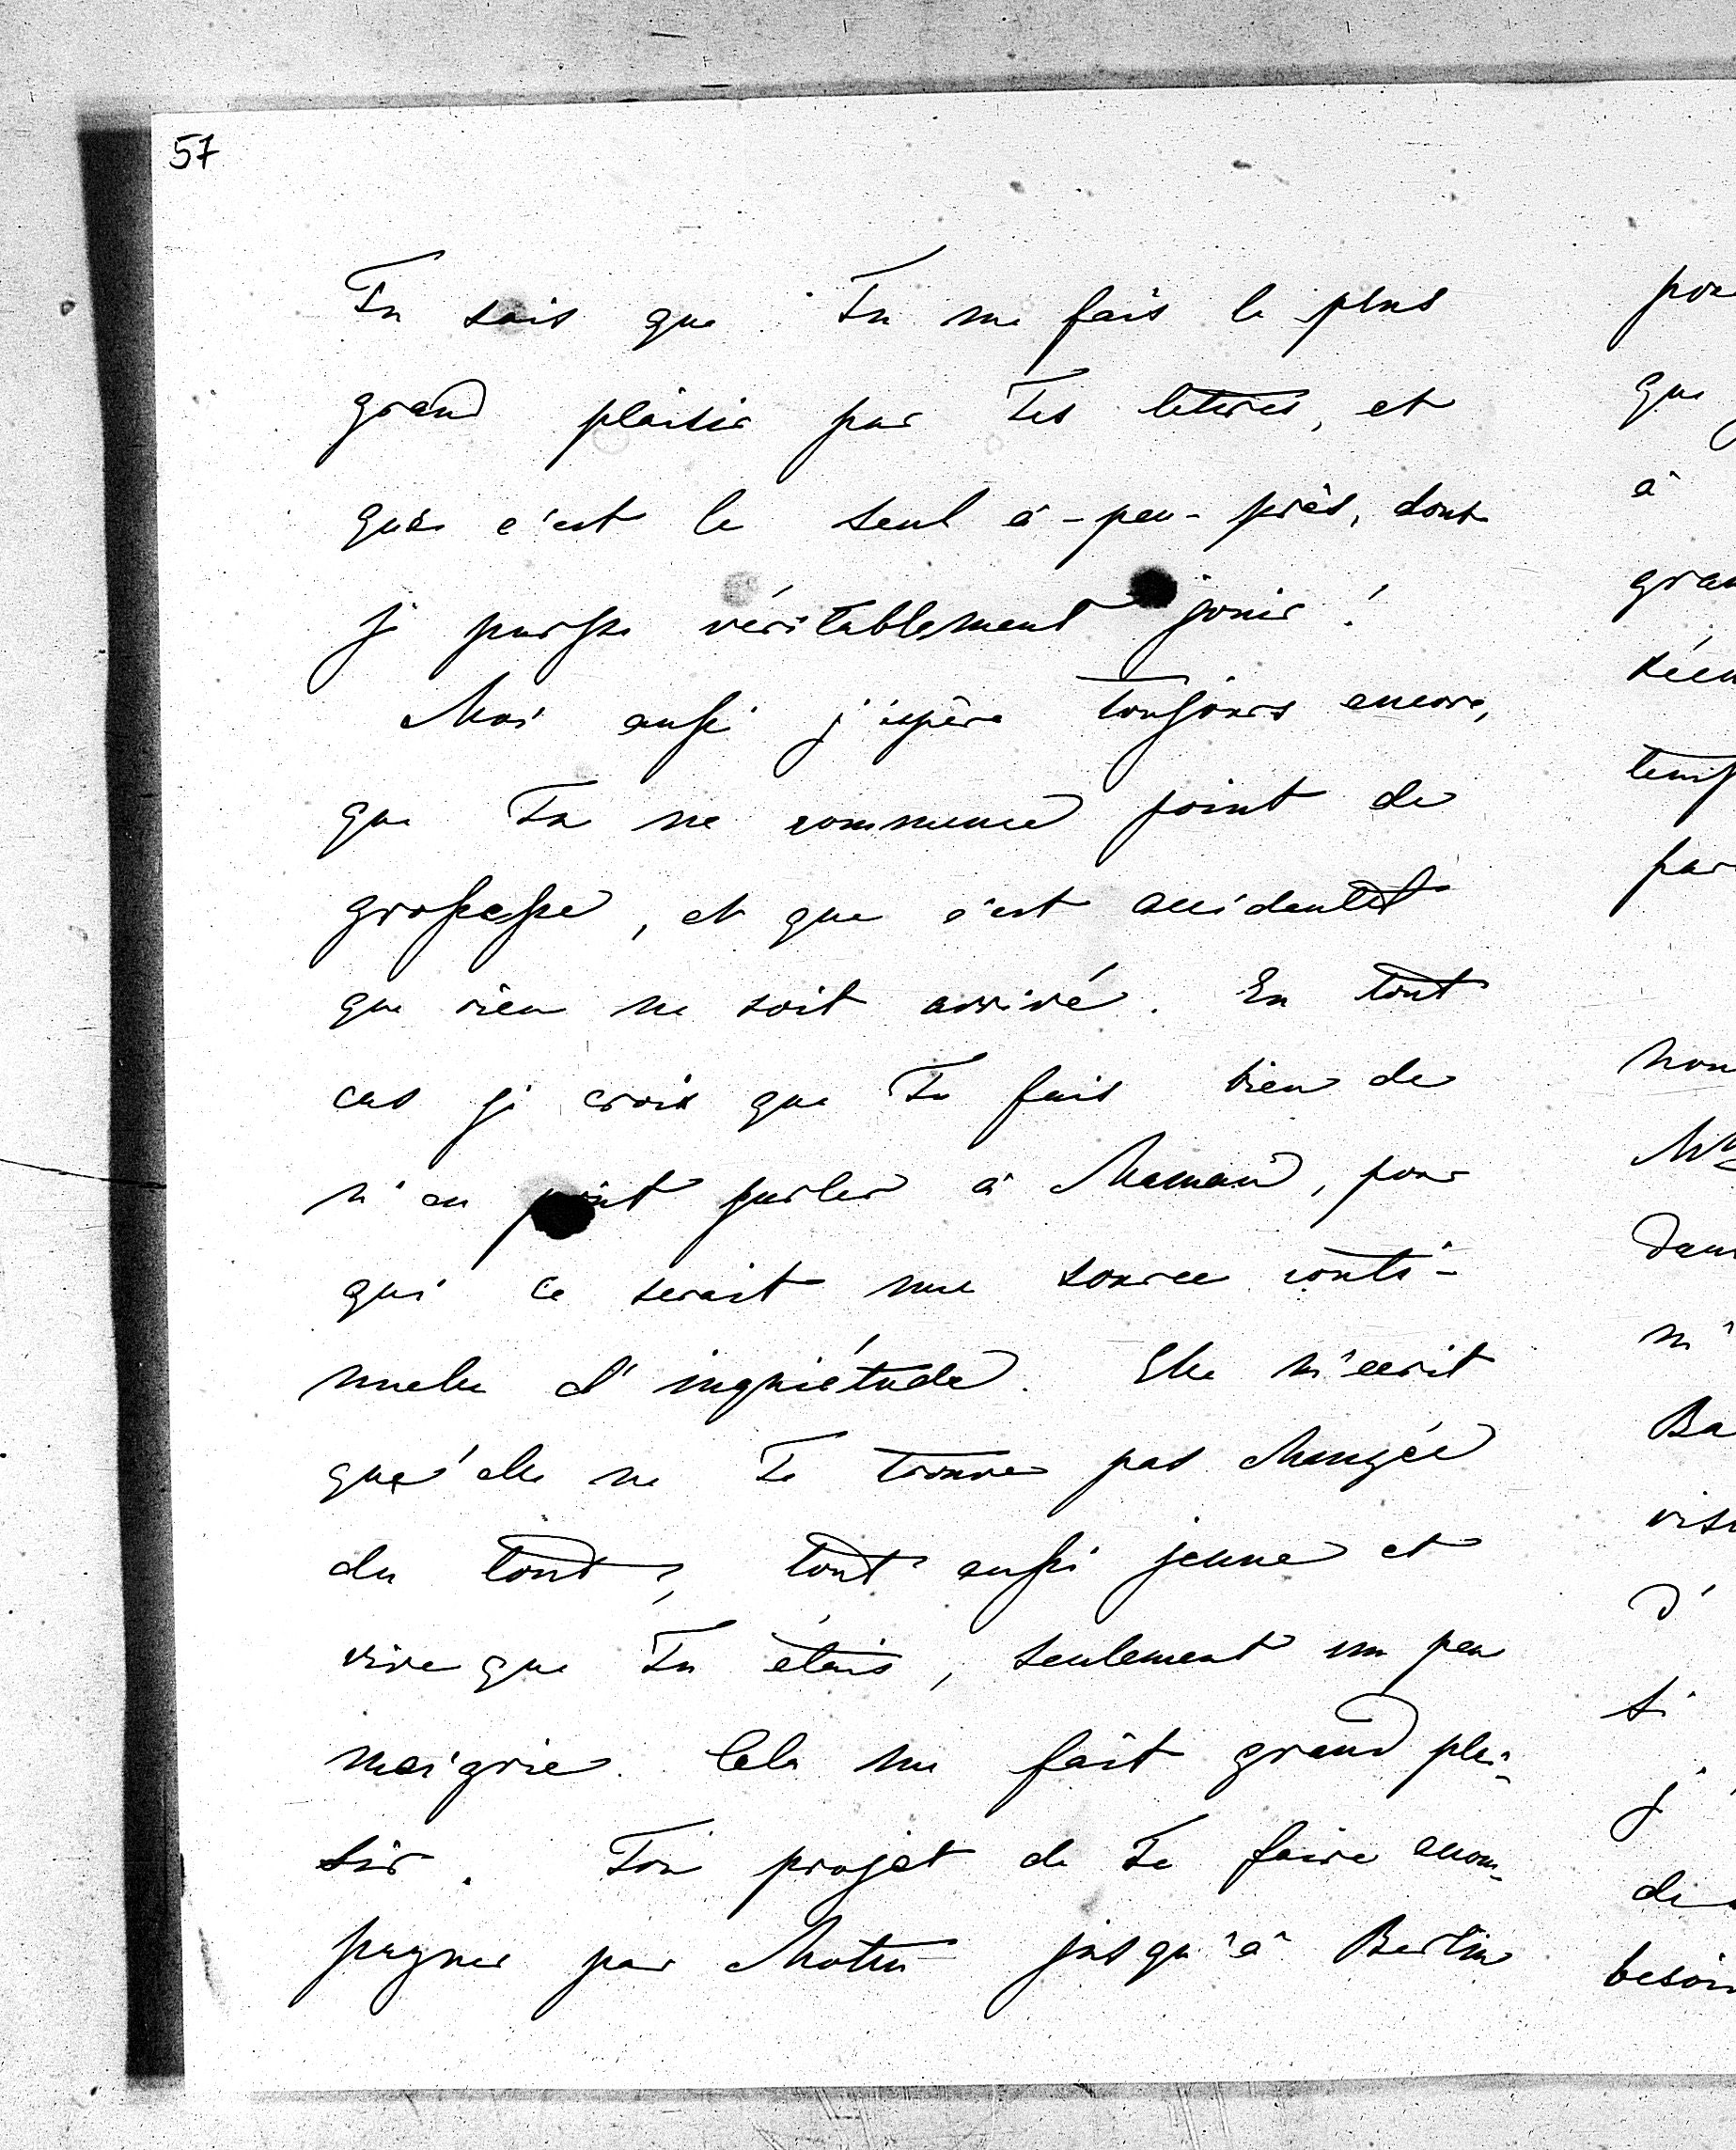 57
Tu sais que Tu me fais le plus
grand plaisir par Tes lettres, et
que c'est le seul à-peu-près, dont
je puisse véritablement jouir!
Moi aussi j'espère toujours encore,
que Tu ne commence point de
grossesse, et que c'est accidentel
que rien ne soit arrivé. En tout
cas je crois que Tu fais bien de
n'en point parler à Maman, pour
qui ce serait une source conti-
nuelle d'inquiétude. Elle m'ecrit
qu'elle ne Te trouve pas changée
du tout, tout aussi jeune et
vive que Tu étais, seulement un peu
maigrie. Cela me fait grand plai-
sir. Ton projet de Te faire accom-
pagner par jusqu'à Berlin
que
à
si
j'
d'
m'
besoin